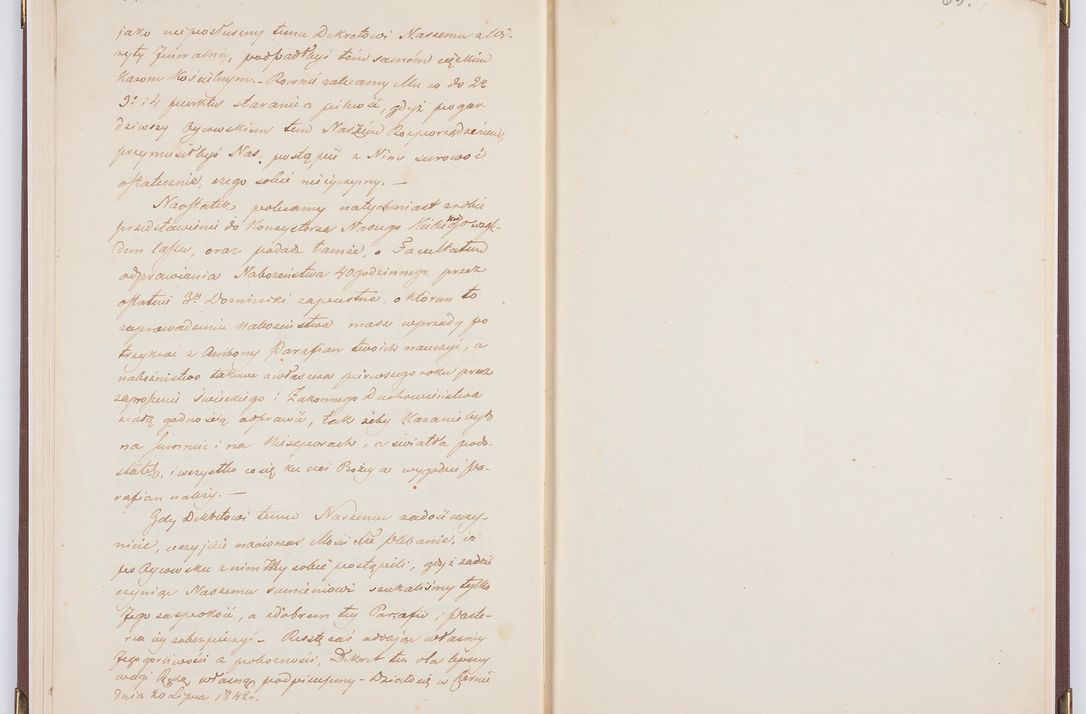 jako nieposłuszny temu Dekretowi Naszemu z Wi-
zyty Jeneralnéj, podpadłbyś tém samém ciężkim
Karom Kościelnym. – Równie zalecamy Mu co do 2º
3º i 4 punktu staranie a pilność, gdyż pogar-
dziwszy Oycowskiem tem Naszém Rozporządzeniem,
przymusiłbyś Nas, postąpić z Nim surowo i
ostatecznie, czego sobie nieżyczymy. —
Naostatek polecamy natychmiast zrobić
przedstawienie do Konsystorza Naszego wzglę-
dem lasu, oraz podadz tamże, o Facultatem
odprawiania Nabożeństwa 40godzinnego przez
ostatnie 3y Dominiki zapustne, o którem to
zaprowadzeniu nabożeństwa masz wprzódy po
trzykroć z Ambony Parafian twoich nauczyć, a
nabożeństwo takowe zwłaszcza pierwszego roku przez
zaproszenie Świeckiego i Zakonnego Duchowieństwa
z całą godnością odprawić, tak żeby Kazanie było
na Summie i na Nieszporach, a światła podo-
statek, i wszystko co się ku czci Bożey a wygodzie Pa-
rafian należy. —
Gdy Dekretowi temu Naszemu zadość uczy-
nicie, uczyjcie naówczas Mości Xże Plebanie, iż
po Oycowsku z nim My sobie postąpili, gdyż zadość
czyniąc Naszemu sumieniowi szukaliśmy tylko
Jego zaspokoić, a zdobrem tey Parafii i Paste-
rza iey zabezpieczyć – Resztę zaś zdając własney
Jego gorliwości a pobożności, Dekret ten dla lepszey
wagi Ręką własną podpisujemy – Działo się w
dnia 20 Lipca 1842r.